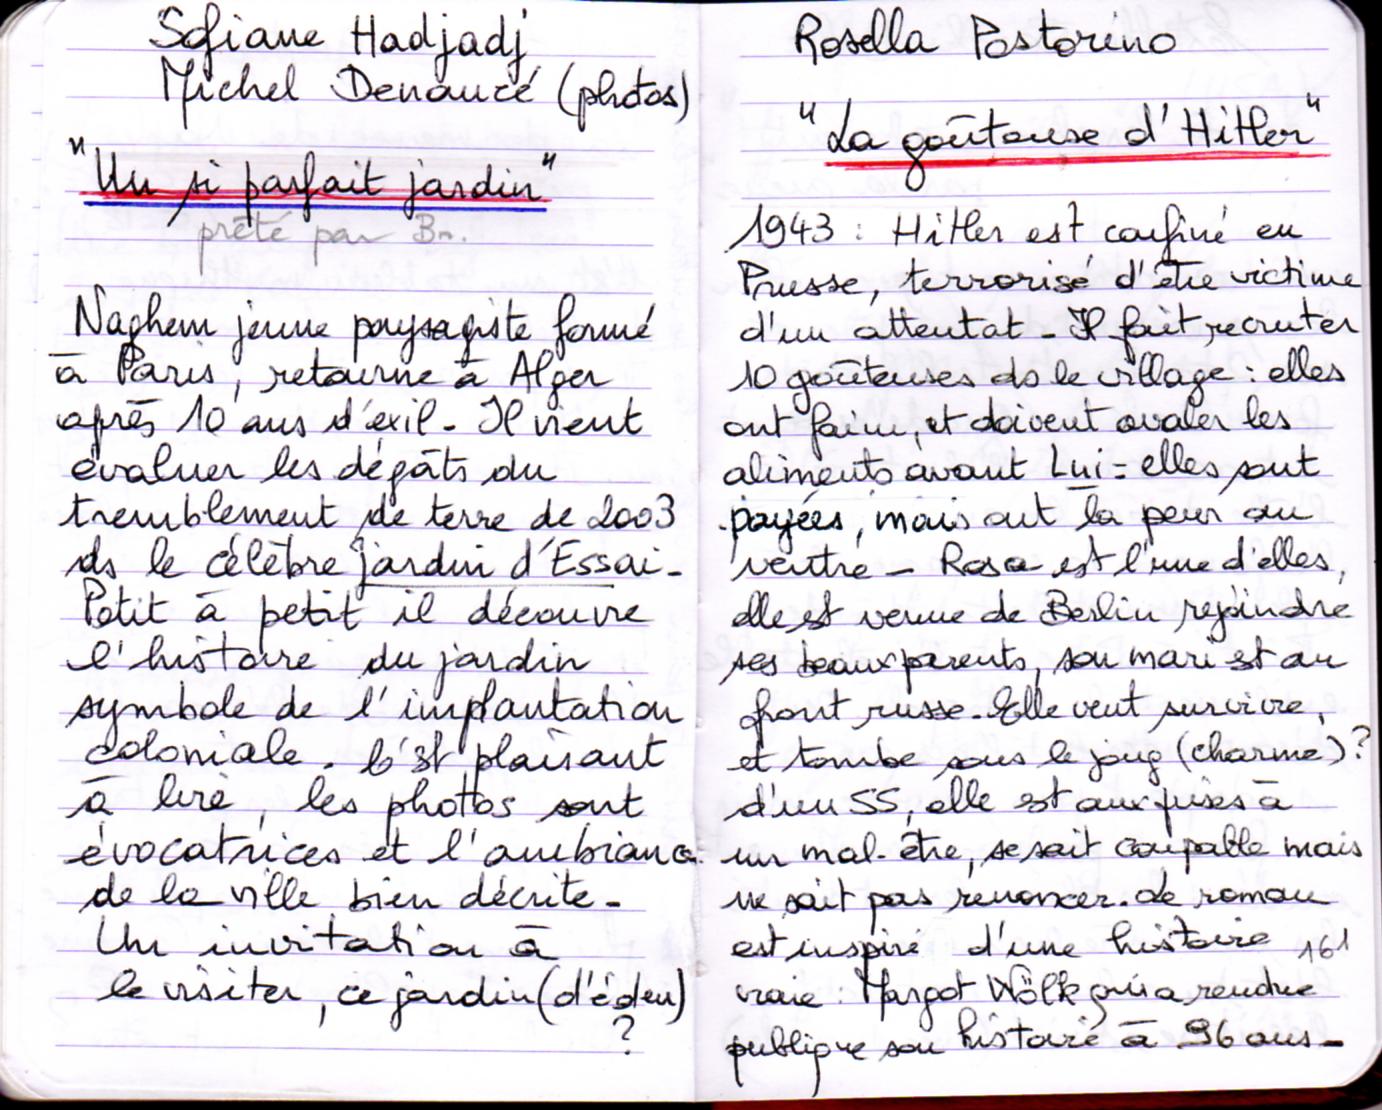 Sofiane Hadjadj
Michel Denancé (photos)
"Un si parfait jardin"
prêté par Bn.
Naghem jeune paysagiste formé
à Paris, retourne à Alger
après 10 ans d'exil - Il vient
évaluer les dégâts du
tremblement de terre de 2003
ds le célèbre jardin d'Essai -
Petit à petit il découvre
l'histoire du jardin
symbole de l'implantation
coloniale. C'est plaisant
à lire, les photos sont
évocatrices et l'ambiance
de la ville bien décrite -
Un invitation à
le visiter, ce jardin (d'éden)
?
Rosella Postorino
"La goûteuse d'Hitler"
1943 : Hitler est confiné en
Prusse, terrorisé d'être victime
d'un attentat - Il fait recruter
10 goûteuses ds le village : elles
ont faim, et doivent avaler les
aliments avant Lui : elles sont
payées, mais ont la peur au
ventre - Rosa est l'une d'elles,
elle est venue de Berlin rejoindre
ses beaux parents, son mari est au
front russe. Elle veut survivre,
et tombe sous le joug (charme)?
d'un SS, elle est aux prises à
un mal-être, se sait coupable mais
ne sait pas renoncer. Le roman
est inspiré d'une histoire 161
vraie : Margot Wölk qui a rendue
publique son histoire à 96 ans -